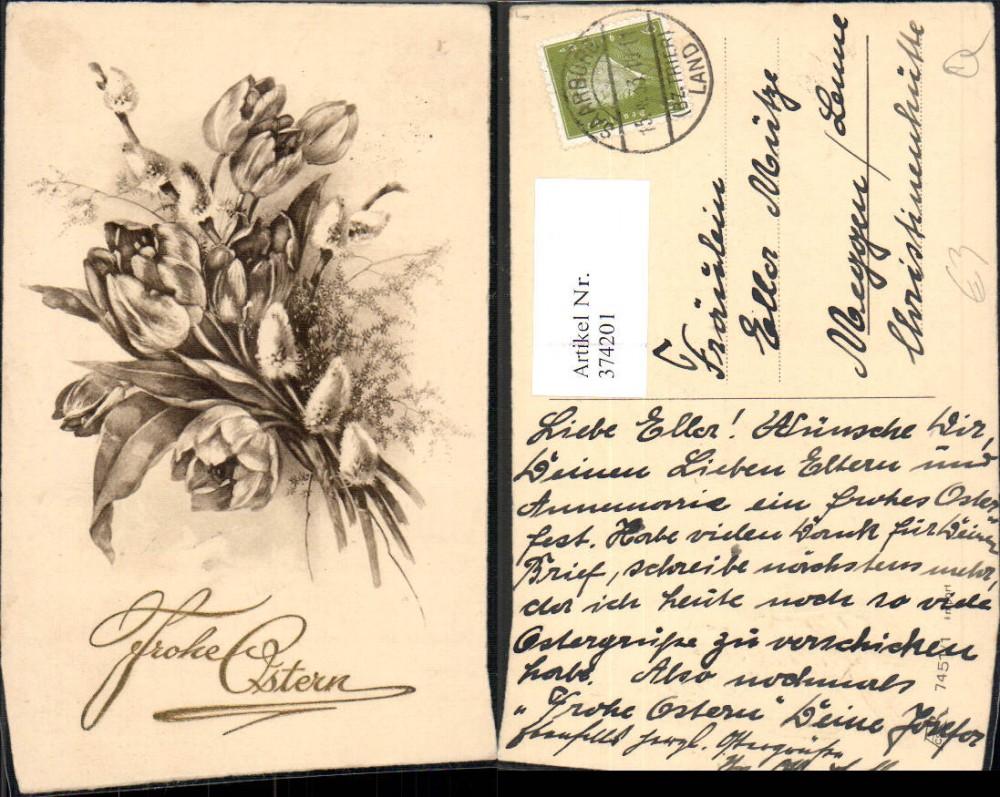 Frohe Ostern
SAARBURG
(BZ. TRIER)
LAND
Artikel Nr.
374201
Fräulein
Ella Mütze
Meggen/Lenne
Christinenhütte
63
Liebe Ella! Wünsche Dir,
Deinen Lieben Eltern und
Annemarie ein frohes Oster-
fest. Habe vielen Dank für Deinen
Brief, schreibe nächstens mehr,
da ich heute noch so viele
Ostergrüße zu verschicken
habe. Also nochmals
„Frohe Ostern" Deine Josefa
Ebenfalls herzl. Ostergrüße
745